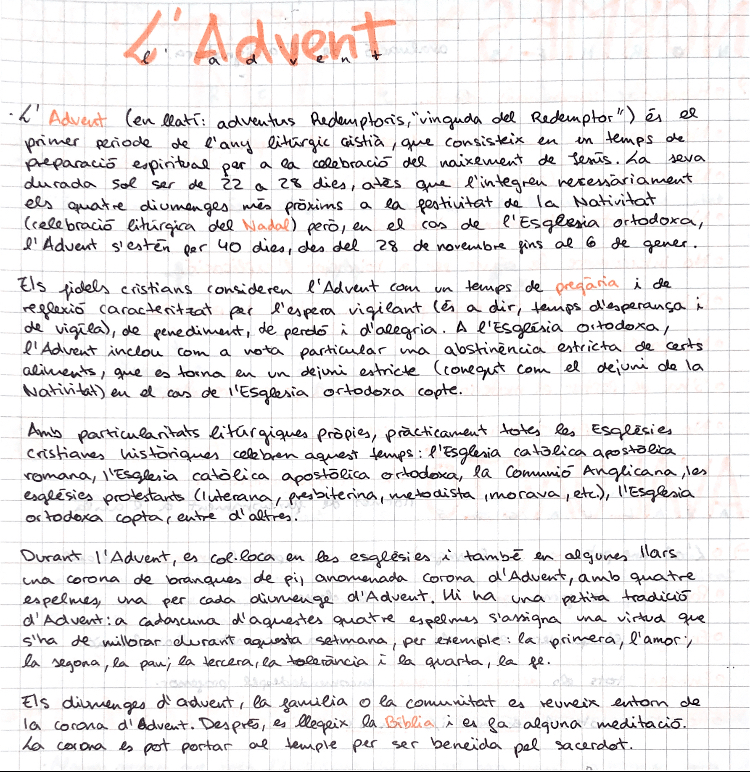 L'Advent
l' a d v e n t
· L' Advent (en llatí: adventus Redemptoris, "vinguda del Redemptor") és el
primer període de l'any litúrgic cristià, que consisteix en un temps de
preparació espiritual per a la celebració del naixement de Jesús. La seva
durada sol ser de 22 a 28 dies, atès que l'integren necessàriament
els quatre diumenges més pròxims a la festivitat de la Nativitat
(celebració litúrgica del Nadal) però, en el cas de l'Església ortodoxa,
l'Advent s'estén per 40 dies, des del 28 de novembre fins al 6 de gener.
Els fidels cristians consideren l'Advent com un temps de pregària i de
reflexió caracteritzat per l'espera vigilant (és a dir, temps d'esperança i
de vigília), de penediment, de perdó i d'alegria. A l'Església ortodoxa,
l'Advent inclou com a nota particular una abstinència estricta de certs
aliments, que es torna en un dejuni estricte (conegut com el dejuni de la
Nativitat) en el cas de l'Esglesia ortodoxa copte.
Amb particularitats litúrgiques pròpies, pràcticament totes les Esglésies
cristianes històriques celebren aquest temps: l'Esglesia catòlica apostòlica
romana, l'Esglesia catòlica apostòlica ortodoxa, la Comunió Anglicana, les
esglésies protestants (luterana, presbiterina, metodista, morava, etc.), l'Esglesia
ortodoxa copta, entre d'altres.
Durant l'Advent, es col·loca en les esglésies i també en algunes llars
una corona de branques de pi, anomenada corona d'Advent, amb quatre
espelmes, una per cada diumenge d'Advent. Hi ha una petita tradició
d'Advent: a cadascuna d'aquestes quatre espelmes s'assigna una virtud que
s'ha de millorar durant aquesta setmana, per exemple: la primera, l'amor;
la segona, la pau; la tercera, la tolerància i la quarta, la fe.
Els diumenges d'advent, la família o la comunitat es reuneix entorn de
la corona d'Advent. Després, es llegeix la Bíblia i es fa alguna meditació.
La corona es pot portar al temple per ser beneïda pel sacerdot.